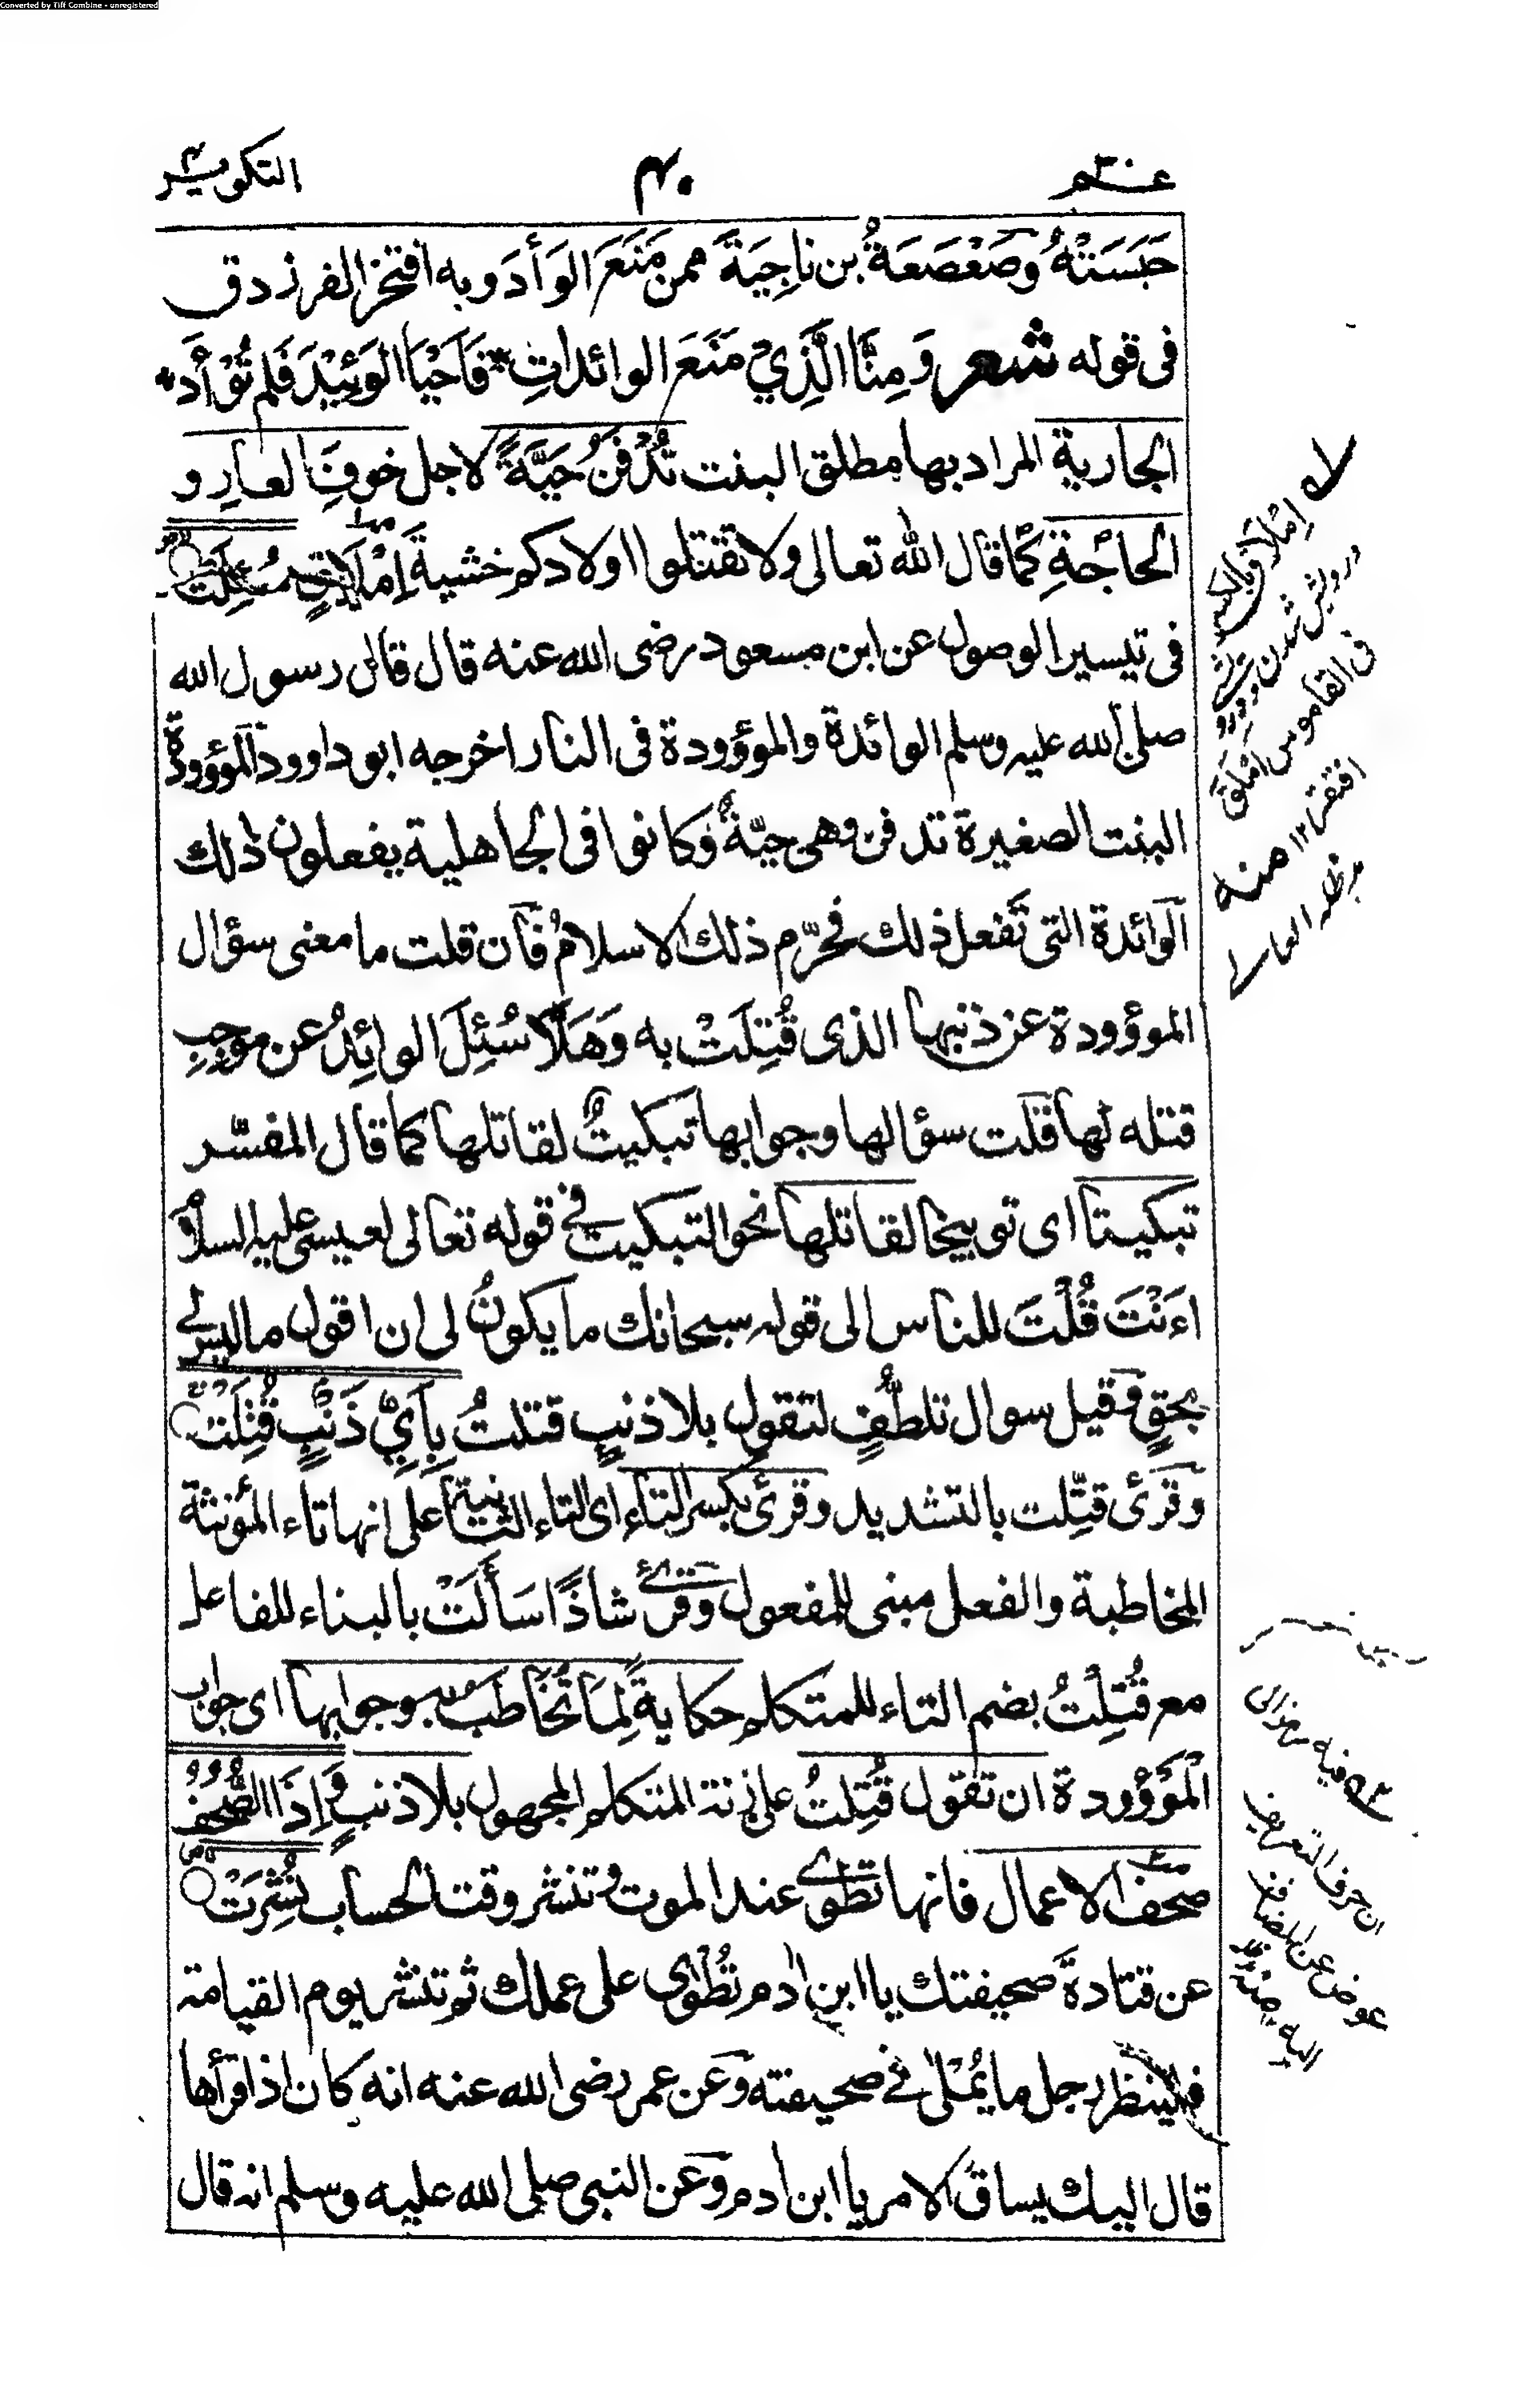 Converted by Tiff Combine - unregistered
عم ٣٠
٤٠
التكوير
حَبَسَتْهُ وصَعْصَعَةُ بن ناجِيَةَ ممن مَنَعَ الوَأدَ وبه افتخر الفرزدق
فى قوله شعر وَمِنَّا الَّذِيْ مَنَعَ الوائداتِ * فَاَحْيَا الوَئِيْدَ فَلم تُوْأَد *
الجارية المراد بها مطلق البنت تُدْفَنُ حَيَّةً لاجل خوفِ العارِ و
الحاجَةِ كما قال الله تعالى ولا تقتلوا اولادكم خشيةَ اِمْلَاقٍ سُئِلَتْ
فى تيسير الوصول عن ابن مسعود رضى الله عنه قال قال رسول الله
صلى الله عليه وسلم الوائدة والموؤودة فى النار اخرجه ابو داوود الموؤودة
البنت الصغيرة تدفن وهى حيّةٌ وكانوا فى الجاهلية يفعلون ذلك
الوائدة التى تَفعل ذلك فحرّم ذلك الاسلامُ فآن قلت ما معنى سؤال
الموؤودة عن ذنبها الذى قُتِلَتْ به وَهَلَّا سُئِلَ الوائِدُ عن موجِبِ
قتله لها قلت سؤالها وجوابها تبكيتٌ لقاتلها كما قال المفسّر
تبكيتا اى توبيخا لقاتلها نحو التبكيت في قوله تعالى لعيسى عليه السلام
اءَنْتَ قُلْتَ للناس الى قوله سبحانك ما يكونُ لى ان اقول ما ليس لي
بحقٍ وقيل سوال تلطُّفٍ لتقول بلا ذنبٍ قتلتُ بِاَيِّ ذَنْبٍ قُتِلَتْ
وقرئ قتِّلت بالتشديد وقرئ بكسر التاء اى التاء الثانية على انها تاء المؤنثة
المخاطبة والفعل مبنى للمفعول وقرئ شاذًا سَأَلَتْ بالبناء للفاعل
مع قُتِلْتُ بضم التاء للمتكلم حكايةً لِمَا تُخَاطَبُ به وجوابها اى جواب
الموؤودة ان تقول قُتِلتُ على زنة المتكلم المجهول بلا ذنبٍ وَاِذَا الصُّحُفُ
صحف الاعمال فانها تطوى عند الموت وتنشر وقت الحساب نُشِرَتْ
عن قتادةَ صحيفتك يا ابن اٰدم تُطْوٰى على عملك ثم تنشر يوم القيامة
فلينظر رجل ما يُمْلٰى في صحيفته وعن عمر رضى الله عنه انه كان اذا قرأها
قال اليك يساق الامر يا ابن اٰدم وعن النبى صلى الله عليه وسلم انه قال
اِمْلَاق بالكسر
درويش شدن
فى القاموس اَمْلَقَ
افتقر ١٢ منه
مد ظله العالى
فيه
ان حرف التعريف
عوض عن المضاف
اليه